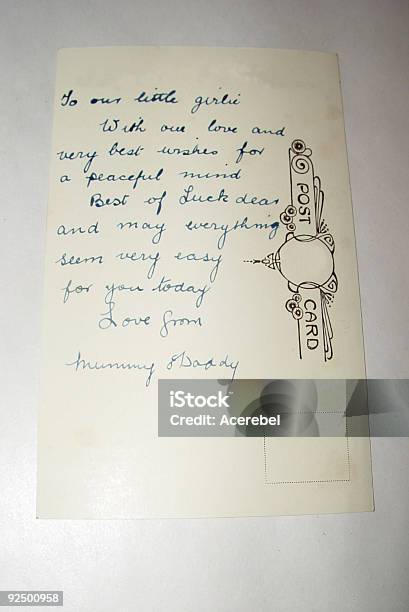 To our little girlie
With our love and
very best wishes for
a peaceful mind
Best of Luck dear
and may everything
seem very easy
for you today
Love from
Mummy & Daddy
POST CARD
iStock
Credit: Acerebel
92500958